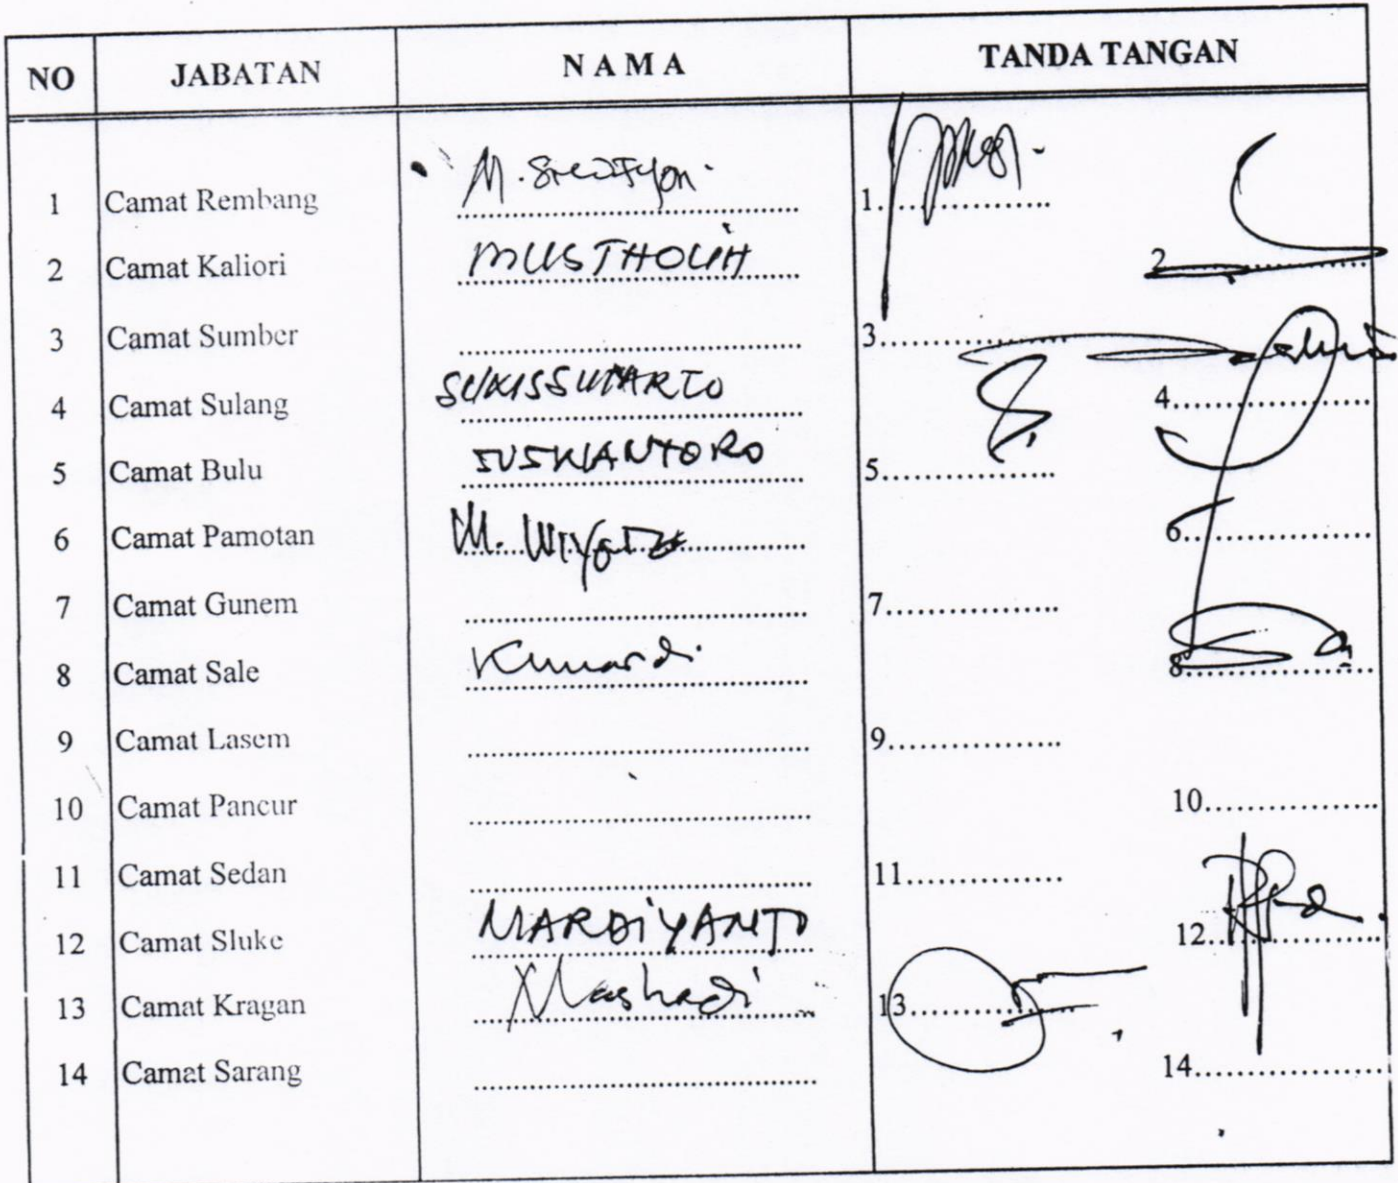 NO JABATAN N A M A TANDA TANGAN
1 Camat Rembang M. 1..................
2 Camat Kaliori MUSTHOLIH 2..................
3 Camat Sumber .................. 3..................
4 Camat Sulang 4..................
5 Camat Bulu SUSWANTORO 5..................
6 Camat Pamotan M. Wiyoto 6..................
7 Camat Gunem .................. 7..................
8 Camat Sale Kunardi 8..................
9 Camat Lasem .................. 9..................
10 Camat Pancur .................. 10..................
11 Camat Sedan .................. 11..................
12 Camat Sluke MARDIYANTO 12..................
13 Camat Kragan Mashadi 13..................
14 Camat Sarang .................. 14..................